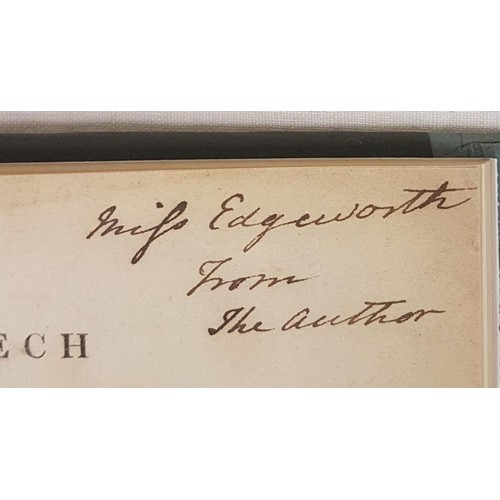 Miſs Edgeworth
From
The Author
ECH